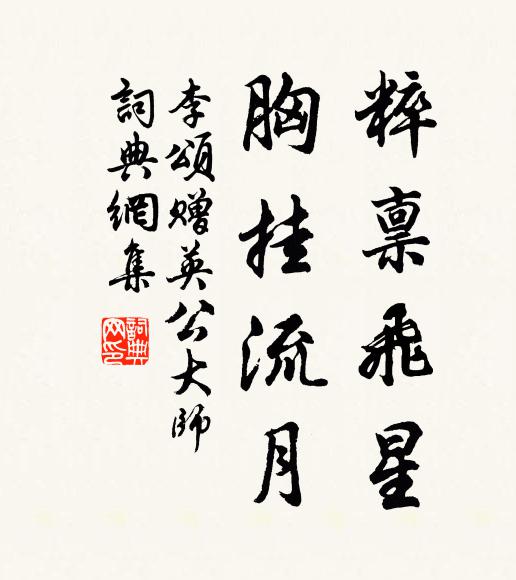 粹禀飛星
胸挂流月
李頌贈英公大師
詞典網集
詞典網印